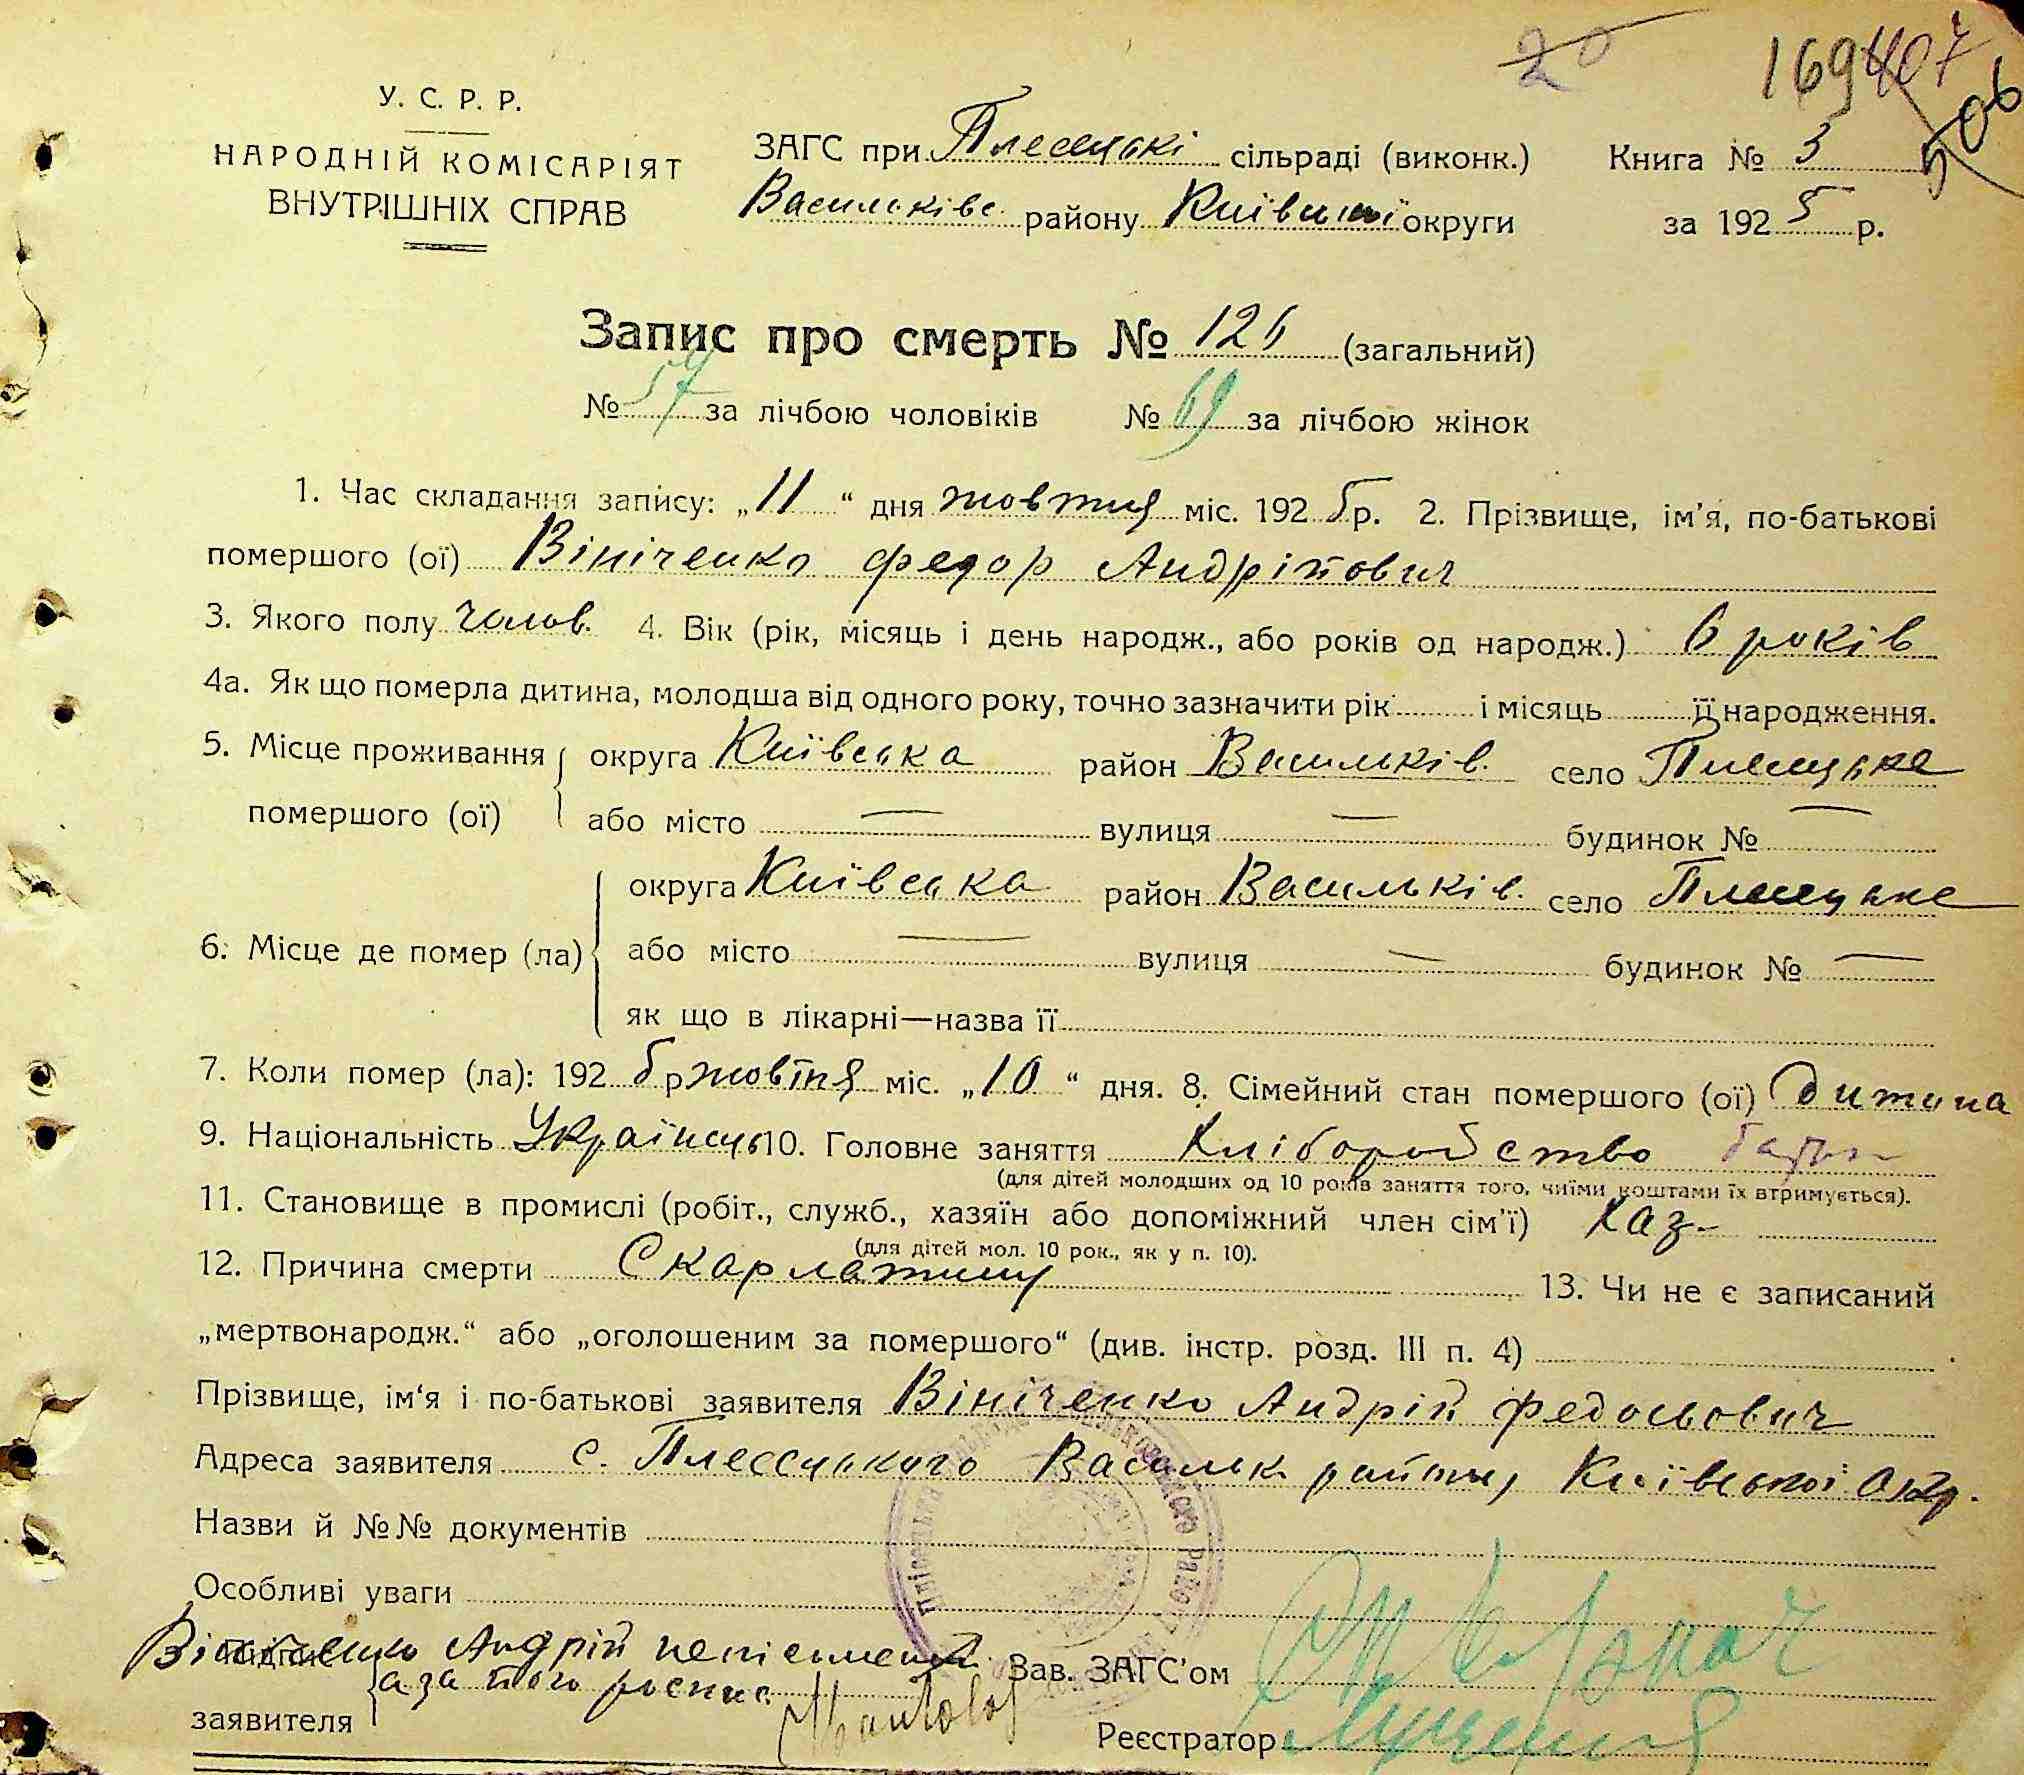 20 169 407 506
У. С. Р. Р.
НАРОДНІЙ КОМІСАРІЯТ
ВНУТРІШНІХ СПРАВ
ЗАГС при Плесецькі сільраді (виконк.) Книга № 3
Васильківс. району Київської округи за 1925 р.
Запис про смерть № 126 (загальний)
№ 57 за лічбою чоловіків № 69 за лічбою жінок
1. Час складання запису: „11“ дня жовтня міс. 1925 р. 2. Прізвище, ім’я, по-батькові
помершого (ої) Вініченко Федор Андрійович
3. Якого полу чолов. 4. Вік (рік, місяць і день народж., або років од народж.) 6 років
4а. Як що померла дитина, молодша від одного року, точно зазначити рік і місяць її народження.
5. Місце проживання округа Київська район Васильків. село Плесецьке
помершого (ої) або місто — вулиця — будинок № —
округа Київська район Васильків. село Плесецьке
6. Місце де помер (ла) або місто — вулиця — будинок № —
як що в лікарні—назва її
7. Коли помер (ла): 1925 р жовтня міс. „10“ дня. 8. Сімейний стан помершого (ої) дитина
9. Національність Українець 10. Головне заняття Хліборобство
(для дітей молодших од 10 років заняття того, чиїми коштами їх втримується).
11. Становище в промислі (робіт., служб., хазяїн або допоміжний член сім’ї) Хаз-
(для дітей мол. 10 рок., як у п. 10).
12. Причина смерти Скарлатина 13. Чи не є записаний
„мертвонародж.“ або „оголошеним за помершого“ (див. інстр. розд. III п. 4)
Прізвище, ім‘я і по-батькові заявителя Вініченко Андрій Федосьович
Адреса заявителя с. Плессцького Васильк. району Київської окр.
Назви й №№ документів
Особливі уваги
Підпис Вініченко Андрій неписьмений Зав. ЗАГС’ом
заявителя а за його роспис.
Реєстратор